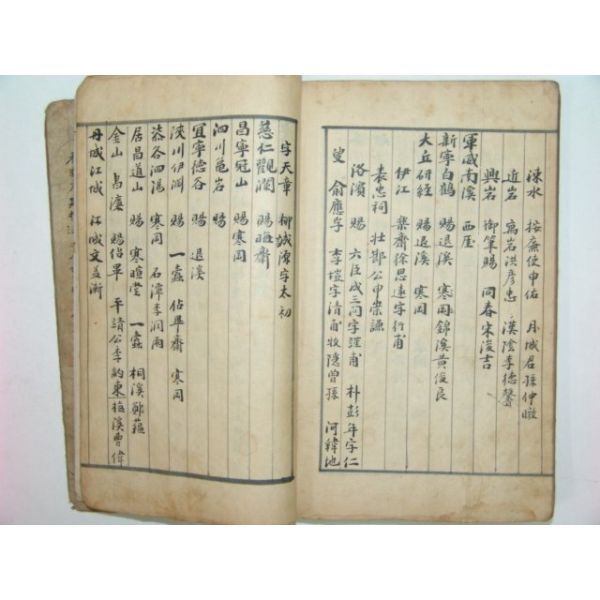 涑水 按廉使申佑 月城君孫仲暾
近岩 寓岩洪彦忠 漢陰李德馨
興岩 御筆賜 同春宋浚吉
軍威南溪 西厓
新寧白鶴 賜退溪 寒岡錦溪黃俊良
大丘研經 賜退溪 寒岡
伊江 樂齋徐思遠字行甫
表忠祠 壯節公申崇謙
洛濱 賜 六臣成三問字謹甫 朴彭年字仁
叟 兪應孚 李塏字清甫牧隱曾孫 河緯地
字天章 柳誠源字太初
慈仁觀瀾 賜晦齋
昌寧冠山 賜寒岡
泗川龜岩 賜
宜寧德谷 賜 退溪
陜川伊淵 賜 一蠹 佔畢齋 寒岡
泗陽 寒岡 石潭李潤雨
居昌道山 賜 寒暄堂 一蠹 桐溪鄭蘊
金山 景濂 賜佔畢 平靖公李約東梅溪曺偉
丹城江城 江城文益漸